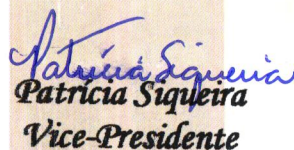 Patrícia Siqueira
Patrícia Siqueira
Vice-Presidente